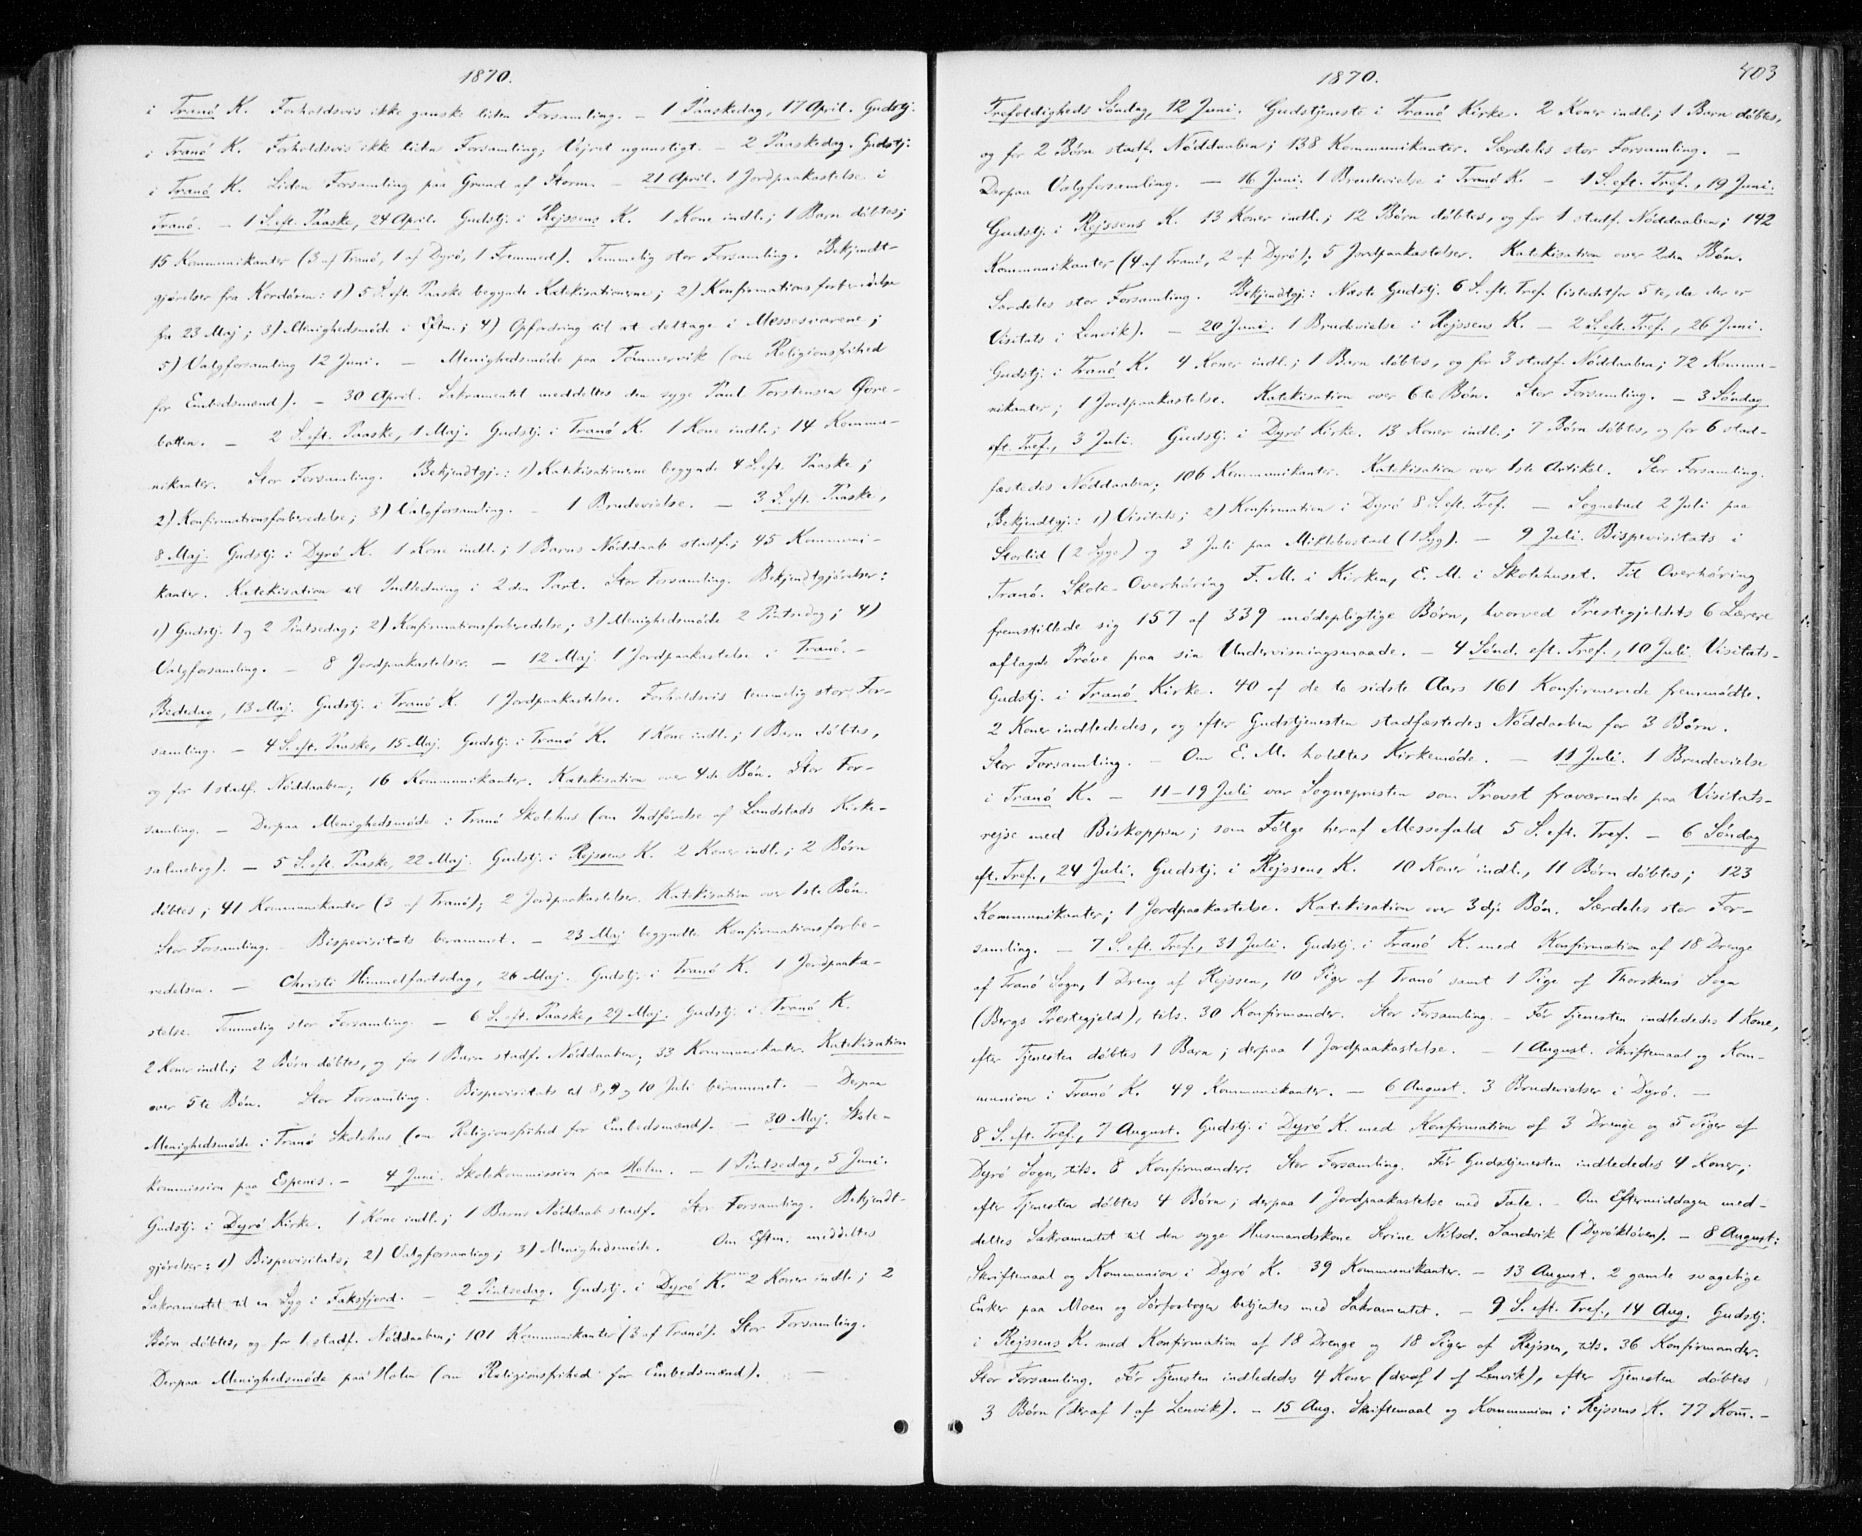 1870.
i Tranö K. Forholdsvis ikke ganske liden Forsamling. – 1 Paaskedag, 17 April. Gudstj.
i Tranö K. Forholdsvis ikke liden Forsamling; Vejret ugunstigt. – 2 Paaskedag. Gudstj:
i Tranö K. Liden Forsamling paa Grund af Storm. – 21 April. 1 Jordpaakastelse i
Tranö. – 1 S. eft. Paaske, 24 April. Gudstj. i Rejssens K. 1 Kone indl.; 1 Barn döbtes;
15 Kommunikanter (3 af Tranö, 1 af Dyrö, 1 Fremmed). Temmelig stor Forsamling. Bekjendt-
gjörelser fra Kordören: 1) 5 S. eft. Paaske begynde Katekisationerne; 2) Konfirmationsforberedelse
fra 23 Maj; 3) Menighedsmöde i Eftm.; 4) Opfordring til at deltage i Messesvarene;
5) Valgforsamling 12 Juni. – Menighedsmöde paa Tömmervik (om Religionsfrihed
for Embedsmænd). – 30 April. Sakramentet meddeltes den syge Paul Torstensen Övre-
botten. – 2 S. eft. Paaske, 1 Maj. Gudstj. i Tranö K. 1 Kone indl.; 14 Kommu-
nikanter. Stor Forsamling. Bekjendtgj.: 1) Katekisationerne begynde 4 S. eft. Paaske;
2) Konfirmationsforberedelse; 3) Valgforsamling. – 1 Brudevielse. – 3 S. eft. Paaske,
8 Maj. Gudstj. i Dyrö K. 1 Kone indl.; 1 Barns Nöddaab stadf.; 45 Kommuni-
kanter. Katekisation til Indledning i 2den Part. Stor Forsamling. Bekjendtgjörelser:
1) Gudstj. 1 og 2 Pintsedag; 2) Konfirmationsforberedelse; 3) Menighedsmöde 2 Pintsedag; 4)
Valgforsamling. – 8 Jordpaakastelser. – 12 Maj. 1 Jordpaakastelse i Tranö. –
Bededag, 13 Maj. Gudstj. i Tranö K. 1 Jordpaakastelse. Forholdsvis temmelig stor For-
samling. – 4 S. eft. Paaske, 15 Maj. Gudstj. i Tranö K. 1 Kone indl.; 1 Barn döbtes,
og for 1 stadf. Nöddaaben; 16 Kommunikanter. Katekisation over 4de Bön. Stor For-
samling. – Derpaa Menighedsmöde i Tranö Skolehus (om Indförelse af Landstads Kirke-
salmebog). – 5 S. eft. Paaske, 22 Maj. Gudstj. i Rejssens K. 2 Koner indl.; 2 Börn
döbtes; 41 Kommunikanter (3 af Tranö); 2 Jordpaakastelser. Katekisation over 1ste Bön.
Stor Forsamling. Bispevisitats berammet. – 23 Maj begyndte Konfirmationsforbe-
redelsen. – Christi Himmelfartsdag, 26 Maj. Gudstj. i Tranö K. 1 Jordpaaka-
stelse. Temmelig stor Forsamling. – 6 S. eft. Paaske, 29 Maj. Gudstj. i Tranö K.
2 Koner indl.; 2 Börn döbtes, og for 1 Barn stadf. Nöddaaben; 33 Kommunikanter. Katekisation
over 5te Bön. Stor Forsamling. Bispevisitats til 8, 9 og 10 Juli berammet. – Derpaa
Menighedsmöde i Tranö Skolehus (om Religionsfrihed for Embedsmænd). – 30 Maj. Skole-
kommission paa Espenes. – 4 Juni. Skolekommission paa Holm. – 1 Pintsedag, 5 Juni.
Gudstj. i Dyrö Kirke. 1 Kone indl.; 1 Barns Nöddaab stadf. Stor Forsamling. Bekjendt-
gjörelser: 1) Bispevisitats; 2) Valgforsamling; 3) Menighedsmöde. Om Eftm. meddeltes
Sakramentet til en Syg i Faksfjord. – 2 Pintsedag. Gudstj. i Dyrö K. 2 Koner indl.; 2
Börn döbtes, og for 1 stadf. Nöddaaben; 101 Kommunikanter (3 af Tranö). Stor Forsamling.
Derpaa Menighedsmöde paa Holm (om Religionsfrihed for Embedsmænd). –
1870.
403
Trefoldigheds Söndag, 12 Juni. Gudstjeneste i Tranö Kirke. 2 Koner indl.; 1 Barn döbtes,
og for 2 Börn stadf. Nöddaaben; 138 Kommunikanter. Særdeles stor Forsamling. –
Derpaa Valgforsamling. – 16 Juni. 1 Brudevielse i Tranö K. – 1 S. eft. Tref., 19 Juni.
Gudstj. i Rejssens K. 13 Koner indl.; 12 Börn döbtes, og for 1 stadf. Nöddaaben; 142
Kommunikanter (4 af Tranö, 2 af Dyrö); 5 Jordpaakastelser. Katekisation over 2den Bön.
Særdeles stor Forsamling. Bekjendtgj.: Næste Gudstj. 6 S. eft. Tref. (istedetfor 5te, da der er
Visitats i Lenvik). – 20 Juni. 1 Brudevielse i Rejssens K. – 2 S. eft. Tref., 26 Juni.
Gudstj. i Tranö K. 4 Koner indl.; 1 Barn döbtes, og for 3 stadf. Nöddaaben; 72 Kommu-
nikanter; 1 Jordpaakastelse. Katekisation over 6te Bön. Stor Forsamling. – 3 Söndag
eft. Tref., 3 Juli. Gudstj. i Dyrö Kirke. 13 Koner indl.; 7 Börn döbtes, og for 6 stad-
fæstedes Nöddaaben; 106 Kommunikanter. Katekisation over 1ste Artikel. Stor Forsamling.
Bekjendtgj.: 1) Visitats; 2) Konfirmation i Dyrö 8 S. eft. Tref. – Sognebud 2 Juli paa
Storlid (2 Syge) og 3 Juli paa Miklebostad (1 Syg). – 9 Juli. Bispevisitats i
Tranö. Skole-Overhöring F. M. i Kirken, E. M. i Skolehuset. Til Overhöring
fremstillede sig 157 af 339 mödepligtige Börn, hvorved Prestegjeldets 6 Lærere
aflagde Pröve paa sin Undervisningsmaade. – 4 Sönd. eft. Tref., 10 Juli. Visitats-
Gudstj. i Tranö Kirke. 40 af de to sidste Aars 161 Konfirmerede fremmödte.
2 Koner indlededes, og efter Gudstjenesten stadfæstedes Nöddaaben for 3 Börn.
Stor Forsamling. – Om E. M. holdtes Kirkemöde. – 11 Juli. 1 Brudevielse
i Tranö K. – 11–19 Juli var Sognepresten som Provst fraværende paa Visitats-
rejse med Biskoppen; som Fölge heraf Messefald 5 S. eft. Tref. – 6 Söndag
eft. Tref., 24 Juli. Gudstj. i Rejssens K. 10 Koner indl., 11 Börn döbtes; 123
Kommunikanter; 1 Jordpaakastelse. Katekisation over 3dje Bön. Særdeles stor For-
samling. – 7 S. eft. Tref., 31 Juli. Gudstj. i Tranö K. med Konfirmation af 18 Drenge
af Tranö Sogn, 1 Dreng af Rejssen, 10 Piger af Tranö samt 1 Pige af Thorskens Sogn
(Bergs Prestegjeld), tils. 30 Konfirmander. Stor Forsamling. – För Tjenesten indlededes 1 Kone,
efter Tjenesten döbtes 1 Barn; derpaa 1 Jordpaakastelse. – 1 August. Skriftemaal og Kom-
munion i Tranö K. 49 Kommunikanter. – 6 August. 3 Brudevielser i Dyrö. –
8 S. eft. Tref., 7 August. Gudstj. i Dyrö K. med Konfirmation af 3 Drenge og 5 Piger af
Dyrö Sogn, tils. 8 Konfirmander. Stor Forsamling. För Gudstjenesten indlededes 4 Koner;
efter Tjenesten döbtes 4 Börn; derpaa 1 Jordpaakastelse med Tale. – Om Eftermiddagen med-
deltes Sakramentet til den syge Husmandskone Serine Nilsd. Sandvik (Dyröklöven). – 8 August:
Skriftemaal og Kommunion i Dyrö K. 39 Kommunikanter. – 13 August. 2 gamle svagelige
Enker paa Moen og Sörfosbogen betjentes med Sakramentet. – 9 S. eft. Tref., 14 Aug. Gudstj.
i Rejssens K. med Konfirmation af 18 Drenge og 18 Piger af Rejssen, tils. 36 Konfirmander.
Stor Forsamling. För Tjenesten indlededes 4 Koner (deraf 1 af Lenvik), efter Tjenesten döbtes
3 Börn (deraf 1 af Lenvik). – 15 Aug. Skriftemaal og Kommunion i Rejssens K. 77 Kom̅. –